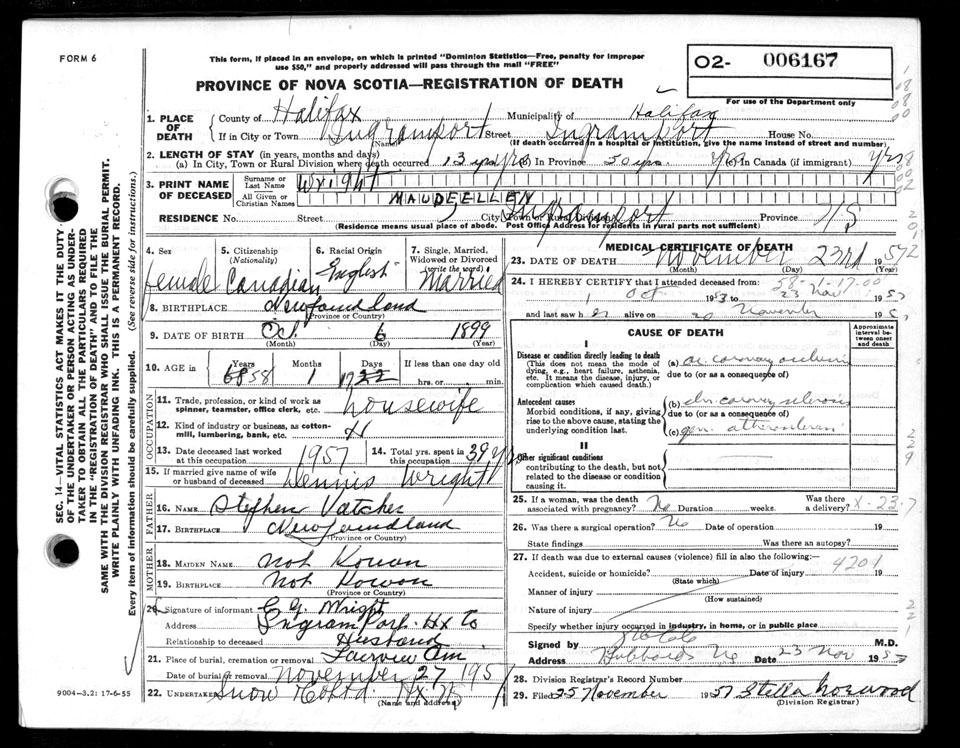 FORM 6
This form, if placed in an envelope, on which is printed "Dominion Statistics—Free, penalty for improper
use $50," and properly addressed will pass through the mails "FREE"
O2- 006167
For use of the Department only
PROVINCE OF NOVA SCOTIA—REGISTRATION OF DEATH
1. PLACE OF DEATH
County of Halifax Municipality of Halifax
If in City or Town Ingramport Street Ingramport House No.
(Name) (If death occurred in a hospital or institution, give the name instead of street and number)
2. LENGTH OF STAY (in years, months and days)
(a) In City, Town or Rural Division where death occurred 13 yrs (b) In Province 30 yrs. (c) In Canada (if immigrant) yrs
3. PRINT NAME OF DECEASED
Surname or Last Name Wright
All Given or Christian Names MAUDE ELLEN
RESIDENCE No. Street City, Town or Rural Division Ingramport Province N S
(Residence means usual place of abode. Post Office Address for residents in rural parts not sufficient)
4. Sex female
5. Citizenship (Nationality) Canadian
6. Racial Origin English
7. Single, Married, Widowed or Divorced (write the word) Married
8. BIRTHPLACE Newfoundland
(Province or Country)
9. DATE OF BIRTH Oct 6 1899
(Month) (Day) (Year)
10. AGE in Years 58 Months 1 Days 17 If less than one day old
hrs. or min.
OCCUPATION
11. Trade, profession, or kind of work as spinner, teamster, office clerk, etc. housewife
12. Kind of industry or business, as cotton-mill, lumbering, bank, etc. H
13. Date deceased last worked at this occupation 1957 14. Total yrs. spent in this occupation 39 yrs
15. If married give name of wife or husband of deceased Dennis Wright
FATHER
16. NAME Stephen Vatcher
17. BIRTHPLACE Newfoundland
(Province or Country)
MOTHER
18. MAIDEN NAME not Kowon
19. BIRTHPLACE Not Kowon
(Province or Country)
20. Signature of informant Wright
Address Ingram Port. Hx Co
Relationship to deceased Husband
21. Place of burial, cremation or removal Fairview
Date of burial or removal November 27 1957
22. UNDERTAKER Snow Hx
(Name and address)
MEDICAL CERTIFICATE OF DEATH
23. DATE OF DEATH November 23rd 1957
(Month) (Day) (Year)
24. I HEREBY CERTIFY that I attended deceased from: 58-1-17.00
1 Oct 1953 to 23 Nov 1957
and last saw her alive on 20 November 195
CAUSE OF DEATH
Approximate interval between onset and death
I
Disease or condition directly leading to death (a) ac coronary occlusion
(This does not mean the mode of dying, e.g., heart failure, asthenia, etc. It means the disease, injury, or complication which caused death.)
due to (or as a consequence of)
Antecedent causes (b) chr coronary sclerosis
Morbid conditions, if any, giving rise to the above cause, stating the underlying condition last.
due to (or as a consequence of)
(c) gen.
II
Other significant conditions
contributing to the death, but not related to the disease or condition causing it.
25. If a woman, was the death associated with pregnancy? No Duration weeks. Was there a delivery? X-23-7
26. Was there a surgical operation? No Date of operation 19
State findings Was there an autopsy?
27. If death was due to external causes (violence) fill in also the following:—
4201
Accident, suicide or homicide? Date of injury 19
(State which)
Manner of injury
(How sustained)
Nature of injury
Specify whether injury occurred in industry, in home, or in public place
Signed by M.D.
Address Hubbards NS Date 23 Nov 1957
28. Division Registrar's Record Number
29. Filed 25 November 1957 Stella Norwood
(Division Registrar)
SEC. 14—VITAL STATISTICS ACT MAKES IT THE DUTY
OF THE UNDERTAKER OR PERSON ACTING AS UNDER-
TAKER TO OBTAIN ALL THE PARTICULARS REQUIRED
IN THE "REGISTRATION OF DEATH" AND TO FILE THE
SAME WITH THE DIVISION REGISTRAR WHO SHALL ISSUE THE BURIAL PERMIT.
WRITE PLAINLY WITH UNFADING INK. THIS IS A PERMANENT RECORD.
Every item of information should be carefully supplied. (See reverse side for instructions.)
9004-3.2: 17-6-55